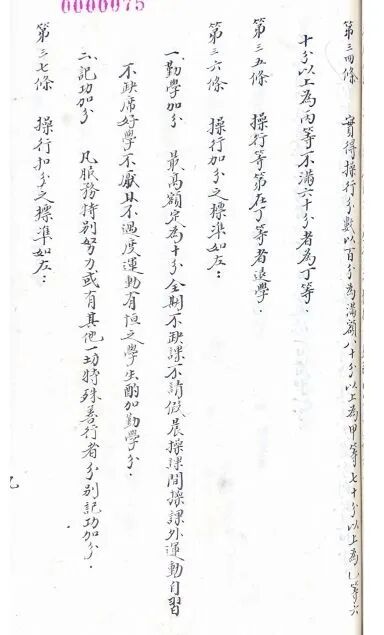 第三四條　實得操行分數以百分為滿額八十分以上為甲等七十分以上為乙等六
十分以上為丙等不滿六十分者為丁等．
第三五條　操行等第在丁等者退學．
第三六條　操行加分之標準如左：
一、勤學加分　最高額定為十分全期不缺課不請假晨操課間操課外運動自習
不缺席好學不厭且不過度運動有恒之學生酌加勤學分．
二、記功加分　凡服務特別努力或有其他一切特殊善行者分別記功加分．
第三七條　操行扣分之標準如左：
0000075
九